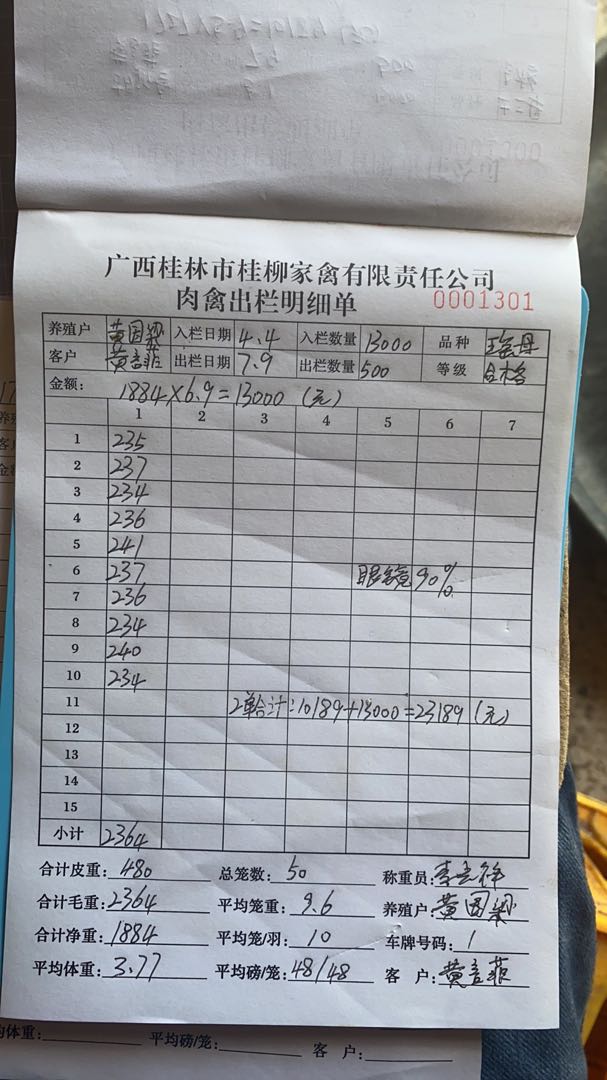 广西桂林市桂柳家禽有限责任公司
肉禽出栏明细单 0001301
养殖户 黄国 入栏日期 4.4 入栏数量 13000 品种
客户 黄言菲 出栏日期 7.9 出栏数量 500 等级 合格
金额: 1884×6.9=13000 (元)
1 2 3 4 5 6 7
1 235
2 237
3 234
4 236
5 241
6 237 眼镜90%
7 236
8 234
9 240
10 234
11 2单合计:10189+13000=23189 (元)
12
13
14
15
小计 2364
合计皮重: 480 总笼数: 50 称重员: 李
合计毛重: 2364 平均笼重: 9.6 养殖户: 黄国
合计净重: 1884 平均笼/羽: 10 车牌号码: 1
平均体重: 3.77 平均磅/笼: 48/48 客 户: 黄言菲
均体重: 平均磅/笼: 客 户: